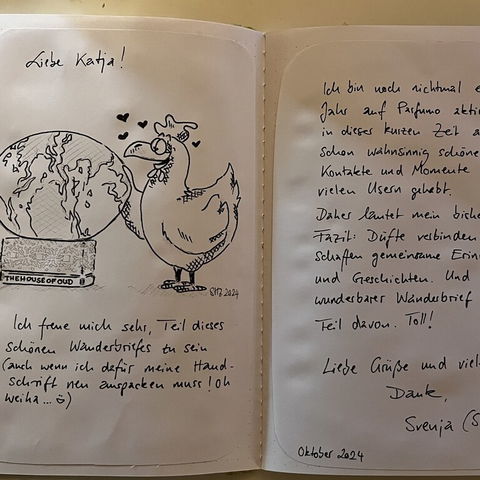 Liebe Katja!
THEHOUSEOFOUD
2024
Ich freue mich sehr, Teil dieses
schönen Wanderbriefes zu sein
(auch wenn ich dafür meine Hand-
schrift neu auspacken muss! Oh
weiha...)
Ich bin noch nichtmal
Jahr auf Parfumo
in dieser kurzen Zeit
schon wahnsinnig schöne
Kontakte und Momente
vielen Usern gehabt.
Daher lautet mein
Fazit: Düfte verbinden
schaffen gemeinsame
und Geschichten. Und
wunderbarer Wanderbrief
Teil davon. Toll!
Liebe Grüße und
Dank,
Svenja (S
Oktober 2024